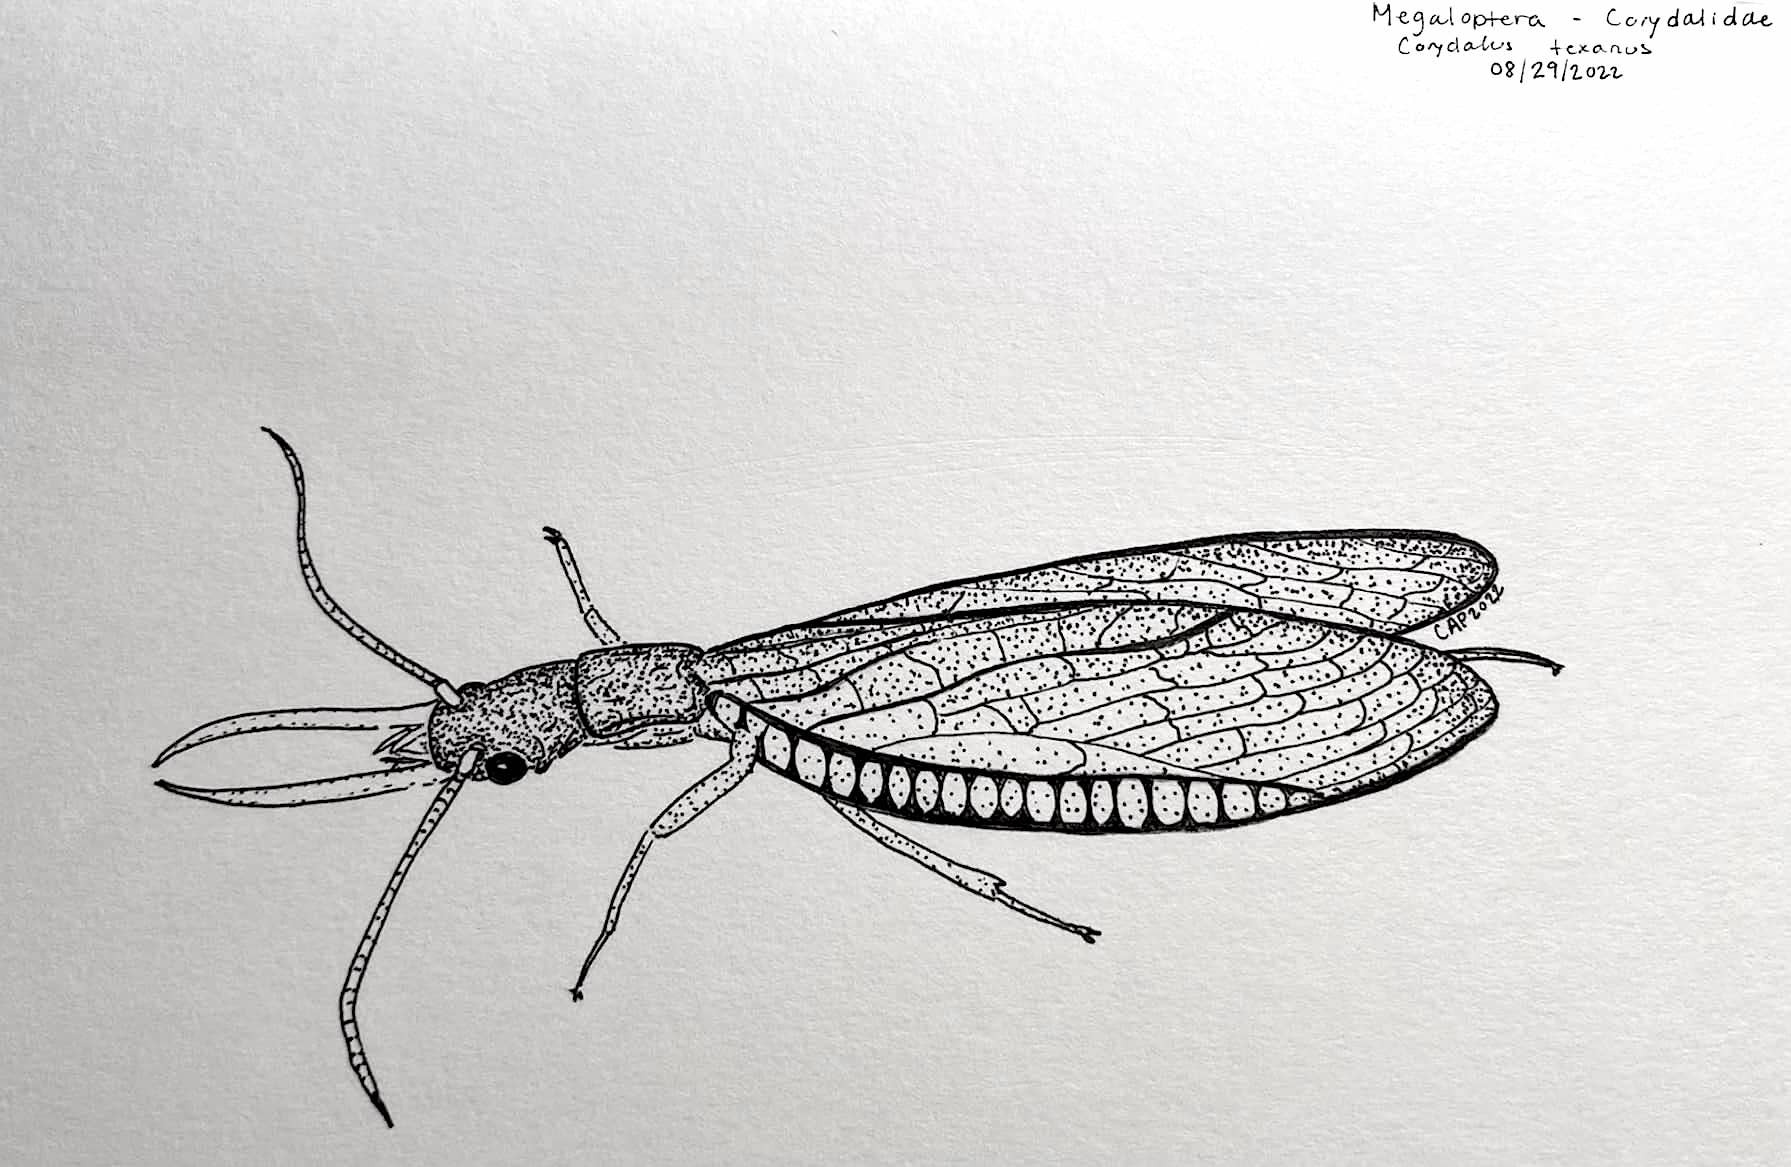 Megaloptera - Corydalidae
Corydalus texanus
08/29/2022
CAP2022